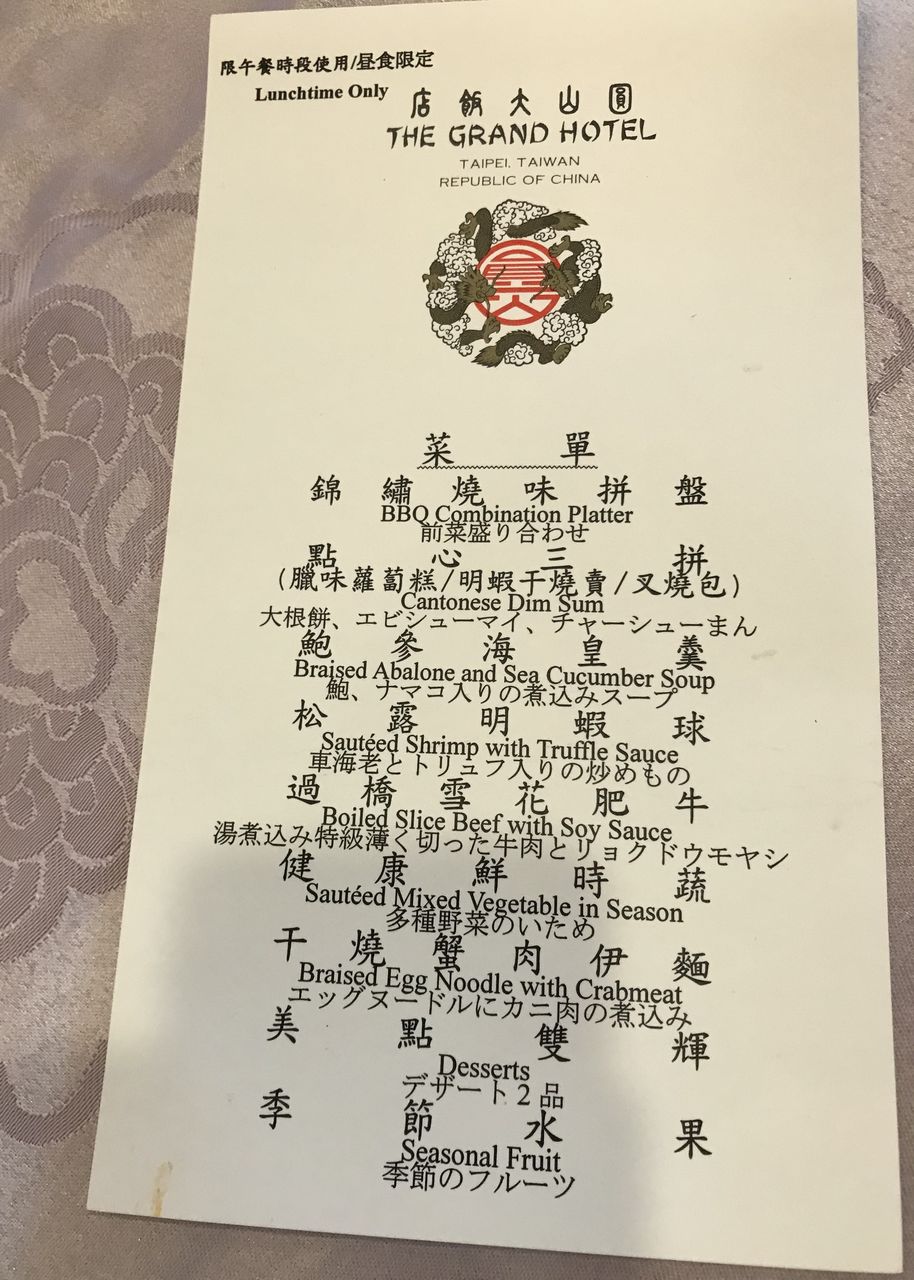 限午餐時段使用/昼食限定
Lunchtime Only
店飯大山圓
THE GRAND HOTEL
TAIPEI, TAIWAN
REPUBLIC OF CHINA
菜單
錦繡燒味拼盤
BBQ Combination Platter
前菜盛り合わせ
點心三拼
(臘味蘿蔔糕/明蝦干燒賣/叉燒包)
Cantonese Dim Sum
大根餅、エビシューマイ、チャーシューまん
鮑參海皇羹
Braised Abalone and Sea Cucumber Soup
鮑、ナマコ入りの煮込みスープ
松露明蝦球
Sautéed Shrimp with Truffle Sauce
車海老とトリュフ入りの炒めもの
過橋雪花肥牛
Boiled Slice Beef with Soy Sauce
湯煮込み特級薄く切った牛肉とリョクドウモヤシ
健康鮮時蔬
Sautéed Mixed Vegetable in Season
多種野菜のいため
干燒蟹肉伊麵
Braised Egg Noodle with Crabmeat
エッグヌードルにカニ肉の煮込み
美點雙輝
Desserts
デザート2品
季節水果
Seasonal Fruit
季節のフルーツ